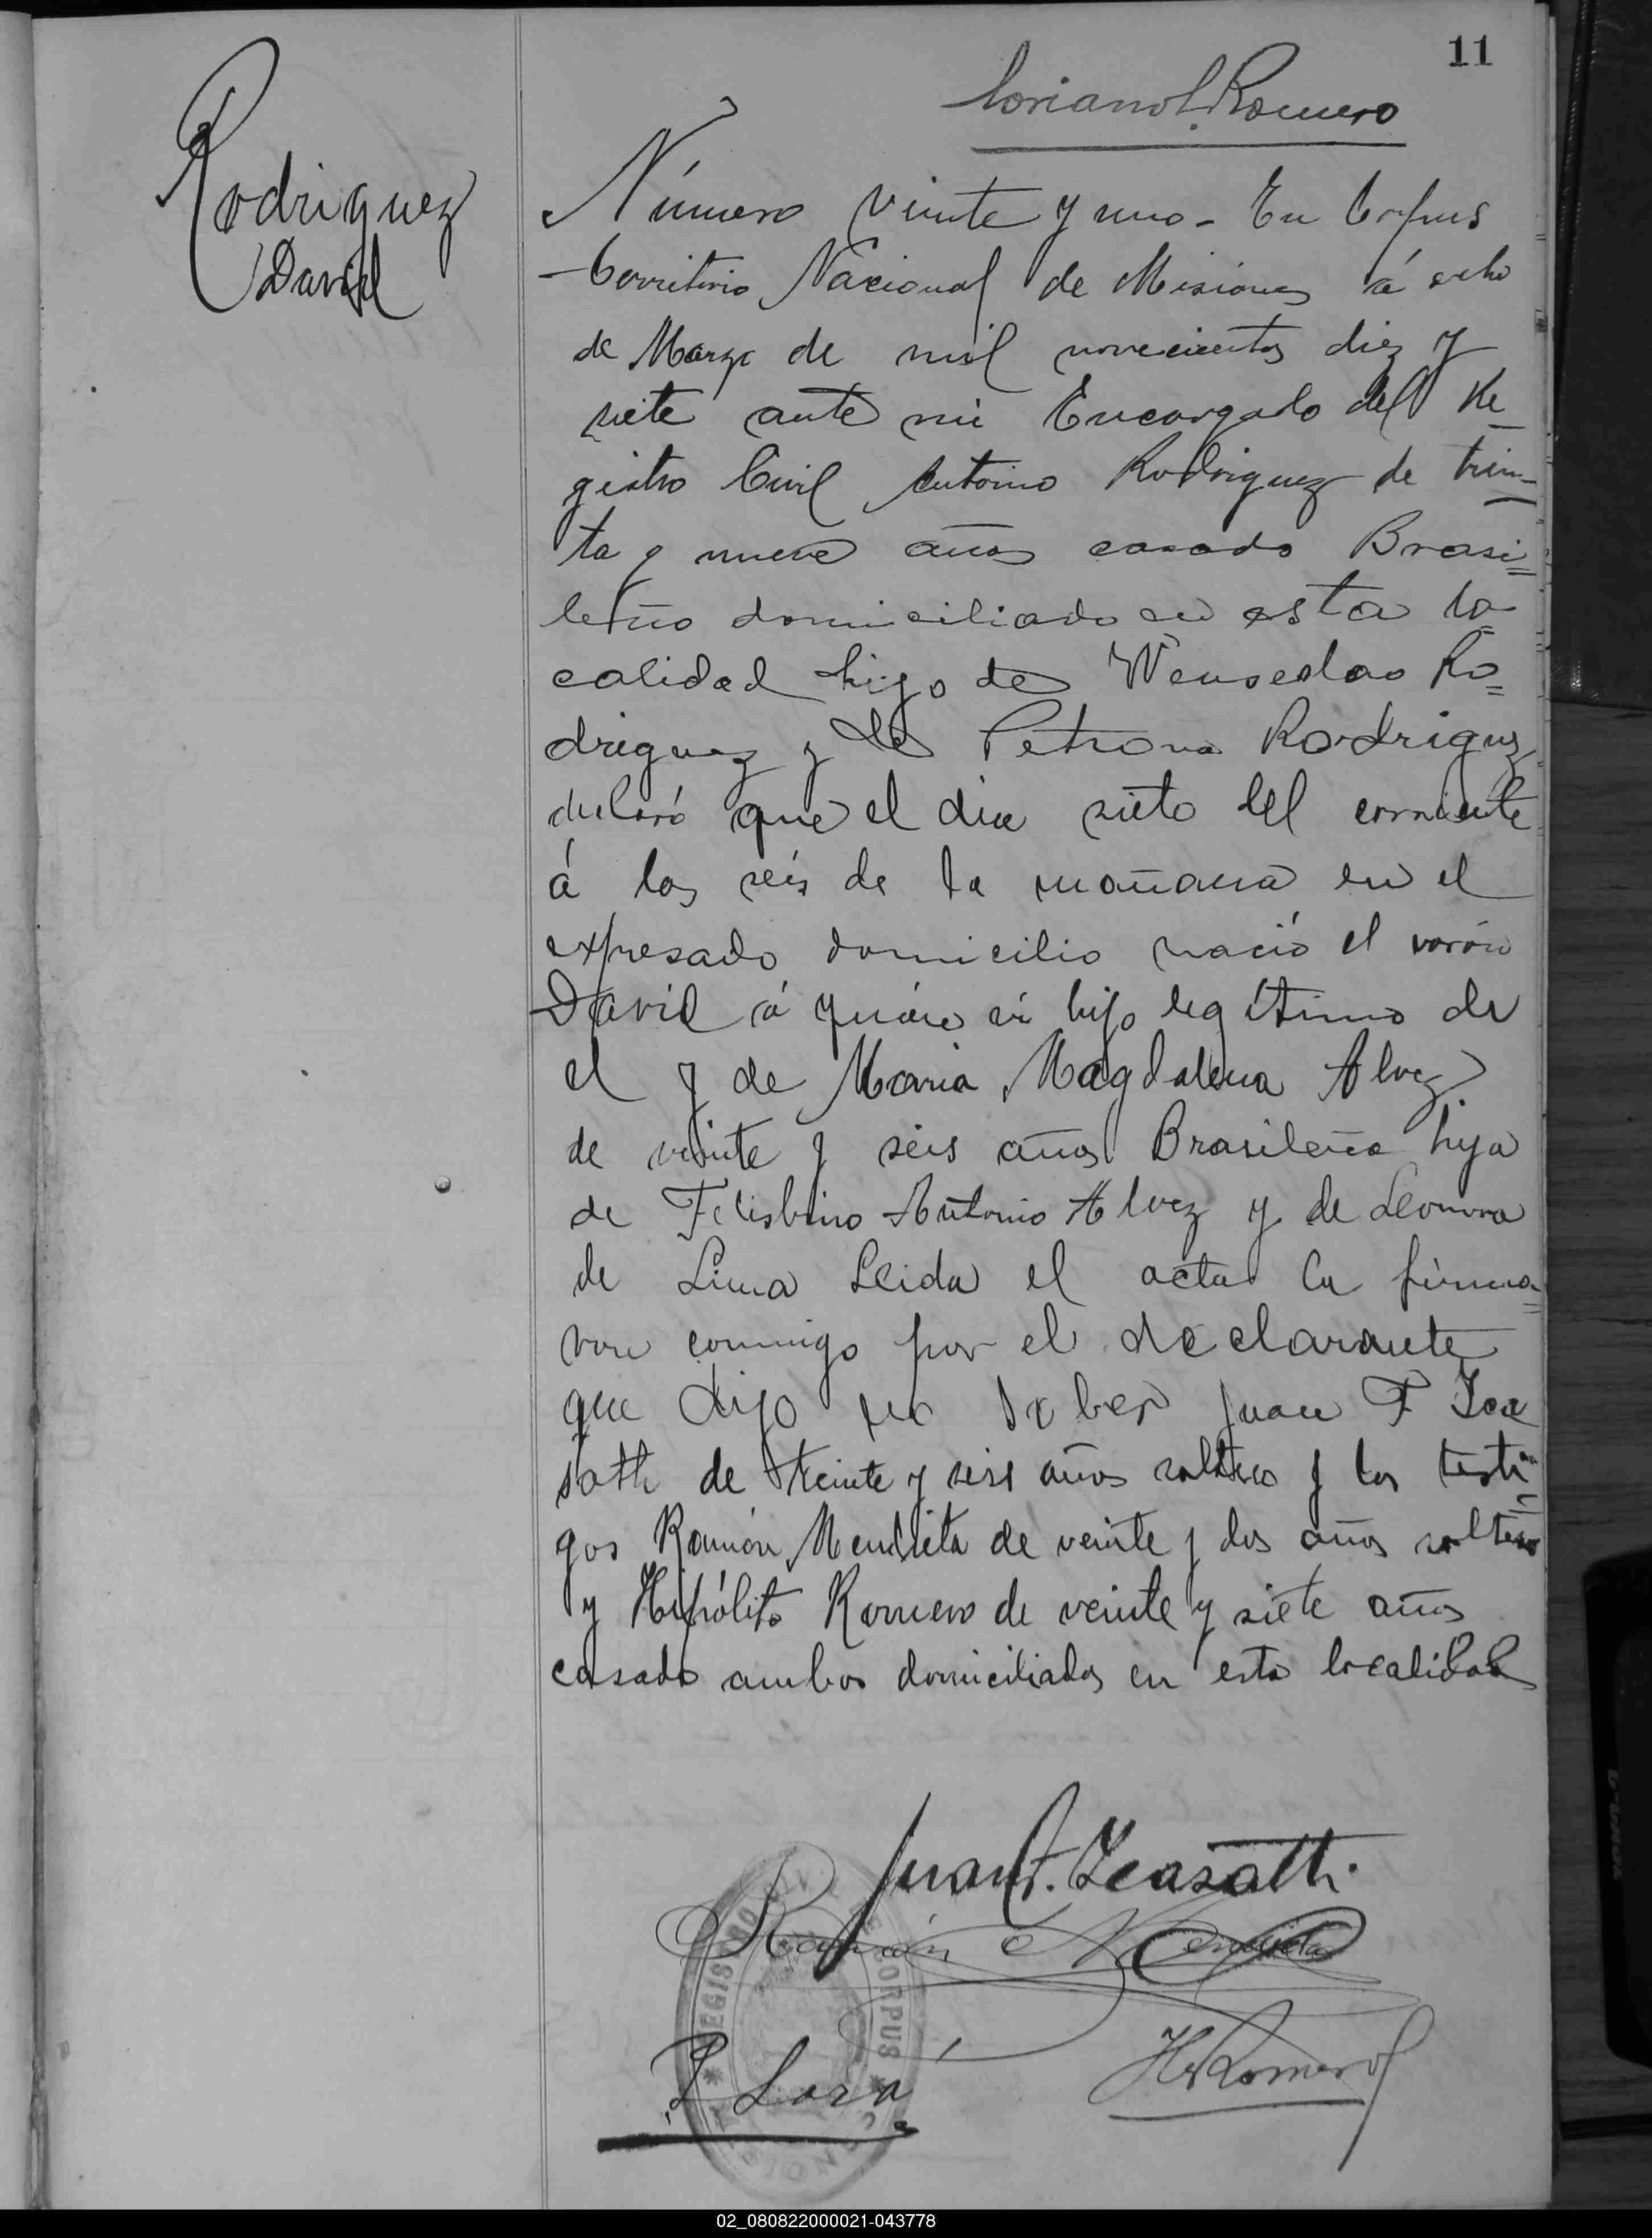 11
Loriano L. Romero
Rodriguez
David
Número veinte y uno - En Corpus
Territorio Nacional de Misiones á ocho
de Marzo de mil novecientos diez y
siete ante mi Encargado del Re
gistro Civil Antonio Rodriguez de trein-
ta y nueve años casado Brasi=
leño domiciliado en esta lo
calidad hijo de Wenseslao Ro=
driguez y de Petrona Rodriguez
declaró que el dia siete del corriente
á las seis de la mañana en el
expresado domicilio nació el varón
David á quien vi hijo legitimo de
el y de Maria Magdalena Alvez
de veinte y seis años Brasileña hija
de Felisbino Antonio Alvez y de Leonora
de Lima Leida el acta la firma=
ron conmigo por el declarante
que dijo no saber Juan F
de y seis años soltero y los testi=
gos Ramón Mendieta de veinte y dos años soltero
y Hipólito Romero de veinte y siete años
casado ambos domiciliados en esta localidad
Juan F.
Ramón Mendieta
REGISTRO CIVIL CORPUS
H. Romero
02_080822000021-043778